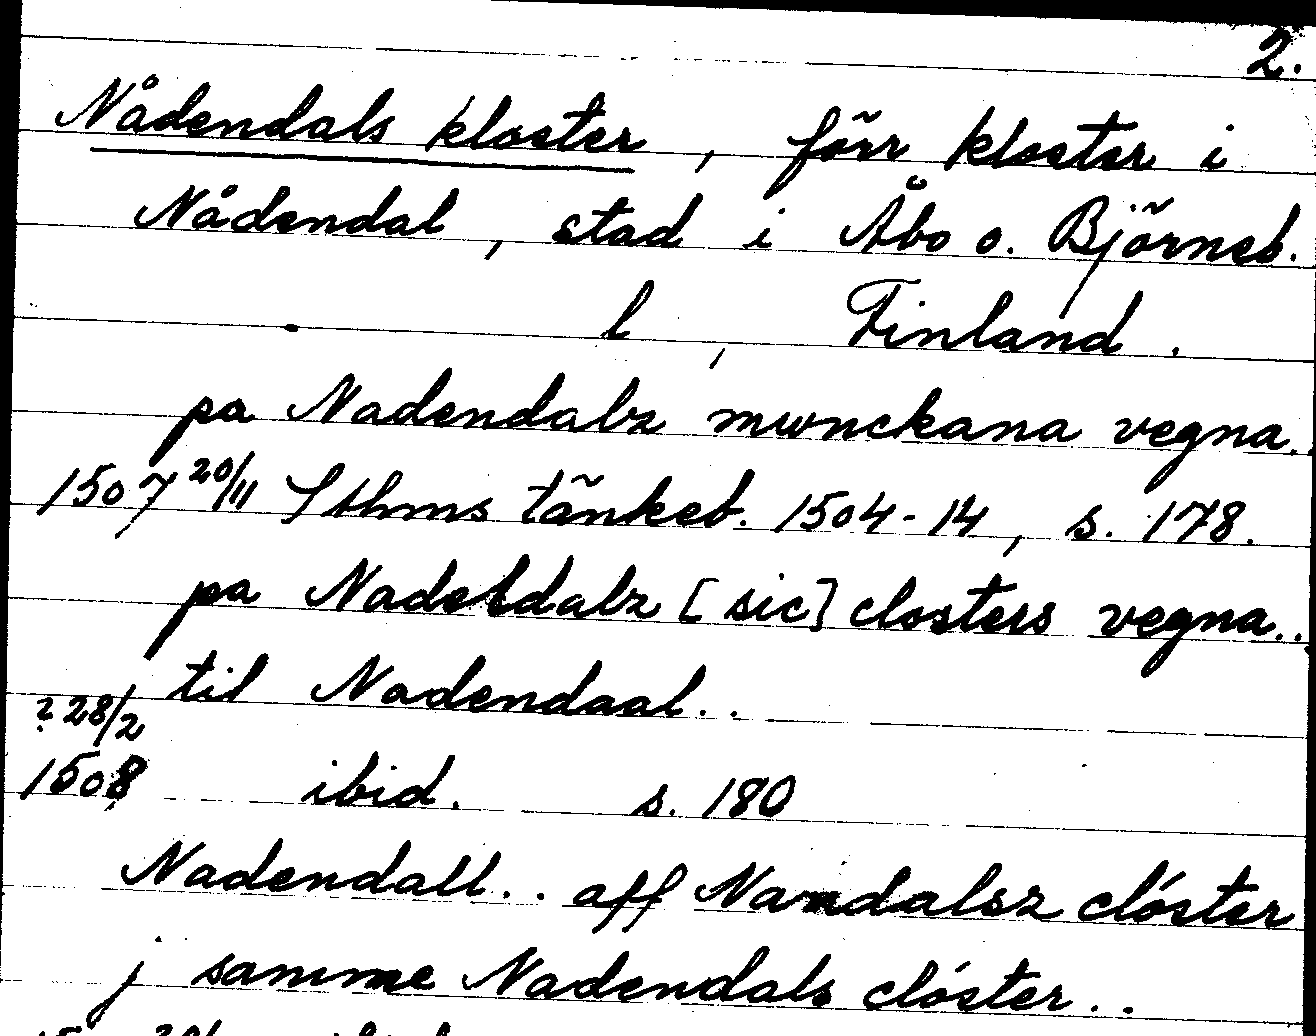 2.
Nådendals kloster, förr kloster i
Nådendal, stad i Åbo o. Björneb.
l, Finland.
pa Nadendalz mwnckana vegna..
1507 20/11 Sthms tänkeb. 1504-14, s. 178.
pa Nadeldalz [sic] closters vegna..
til Nadendaal..
? 28/2
1508 ibid. s. 180
Nadendall.. aff Nandalsz clóster
j samme Nadendals clóster..